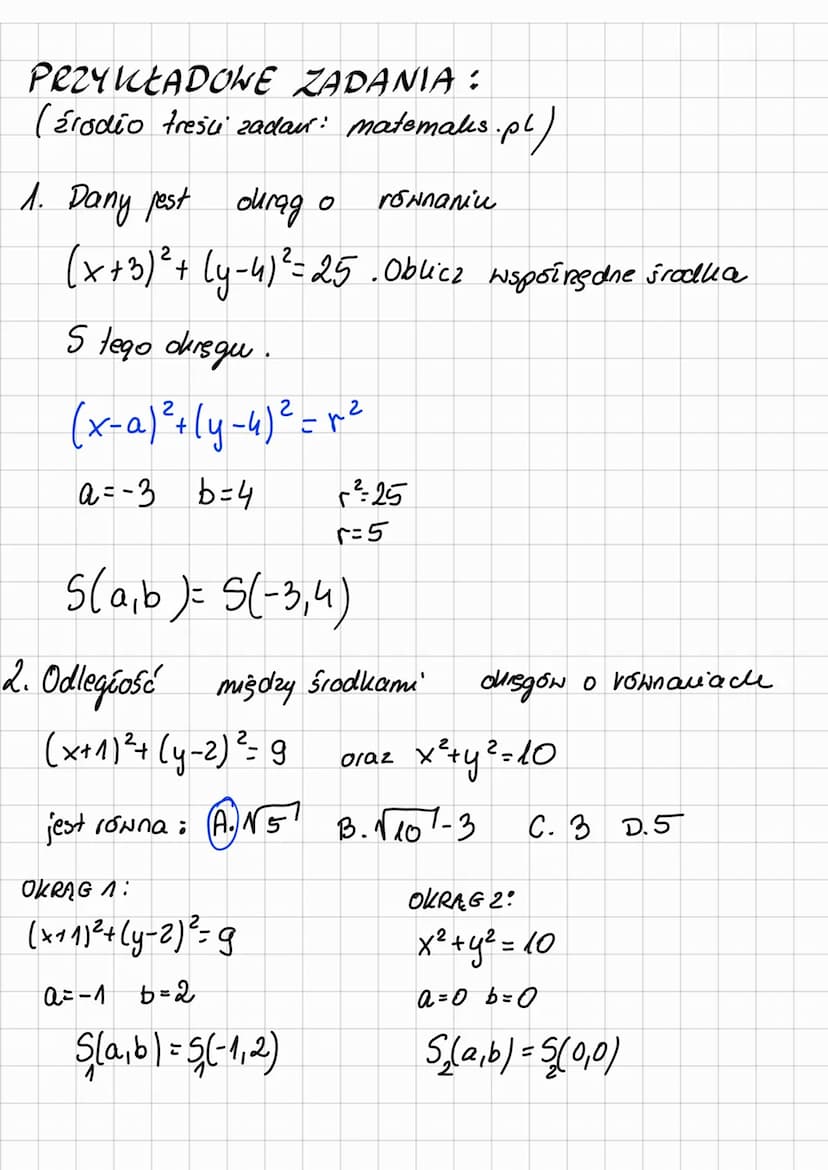 PRZYKŁADOWE ZADANIA:
(źródło treści zadań: matemaks.pl)
1. Dany jest okrąg o równaniu
(x+3)²+(y-4)²=25. Oblicz współrzędne środka
S tego okręgu.
(x-a)²+(y-4)²=r²
a=-3 b=4 r²=25
r=5
S(a,b)=S(-3,4)
2. Odległość między środkami okręgów o równaniach
(x+1)²+(y-2)²=9 oraz x²+y²=10
jest równa: A.√5 B.√10-3 C. 3 D.5
OKRĄG 1:
(x+1)²+(y-2)²=9
a=-1 b=2
S₁(a,b)=S₁(-1,2)
OKRĄG 2:
x²+y²=10
a=0 b=0
S₂(a,b)=S₂(0,0)